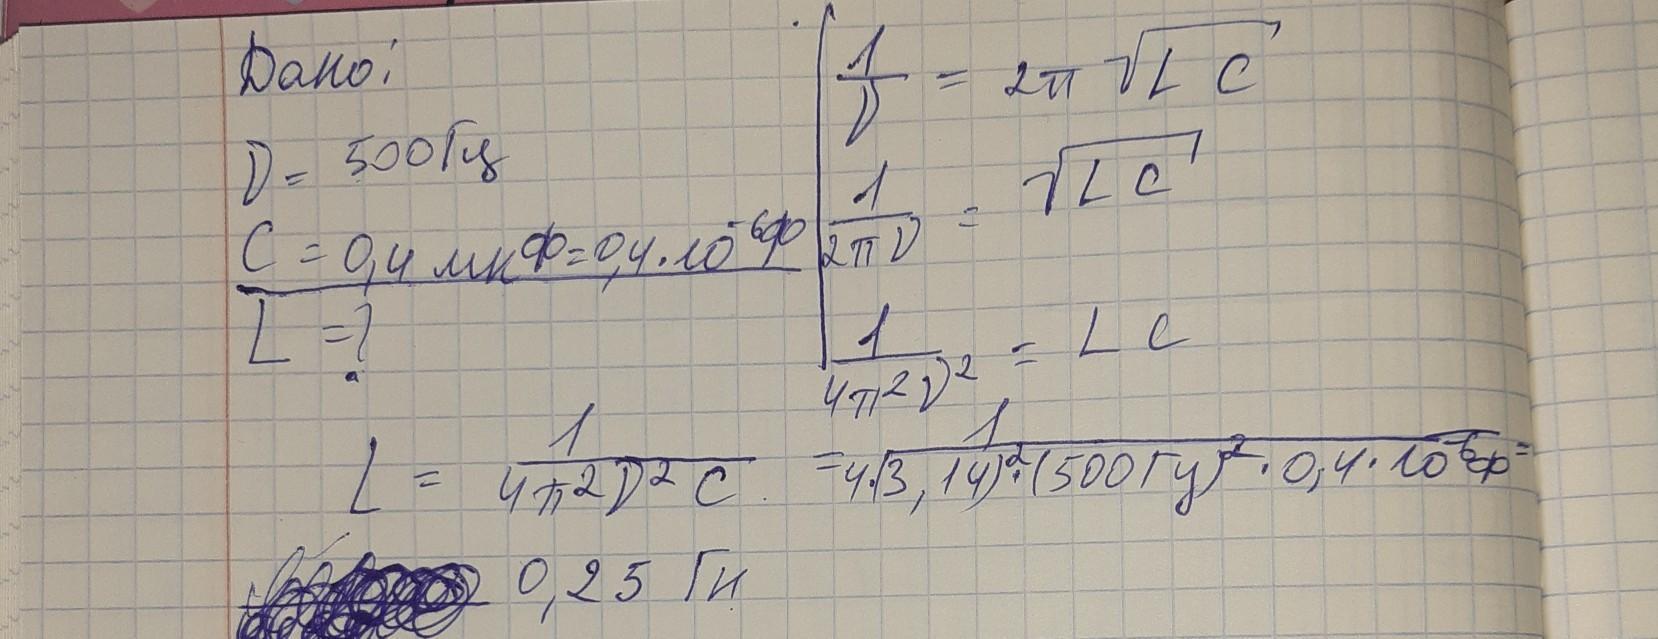 Дано:
ν = 500 Гц
C = 0,4 мкФ = 0,4·10⁻⁶ф
L = ?
1/ν = 2π √LC
1/2πν = √LC
1/4π²ν² = LC
L = 1/4π²ν²C = 1/4·(3,14)²·(500 Гц)²·0,4·10⁻⁶ф =
0,25 Гн